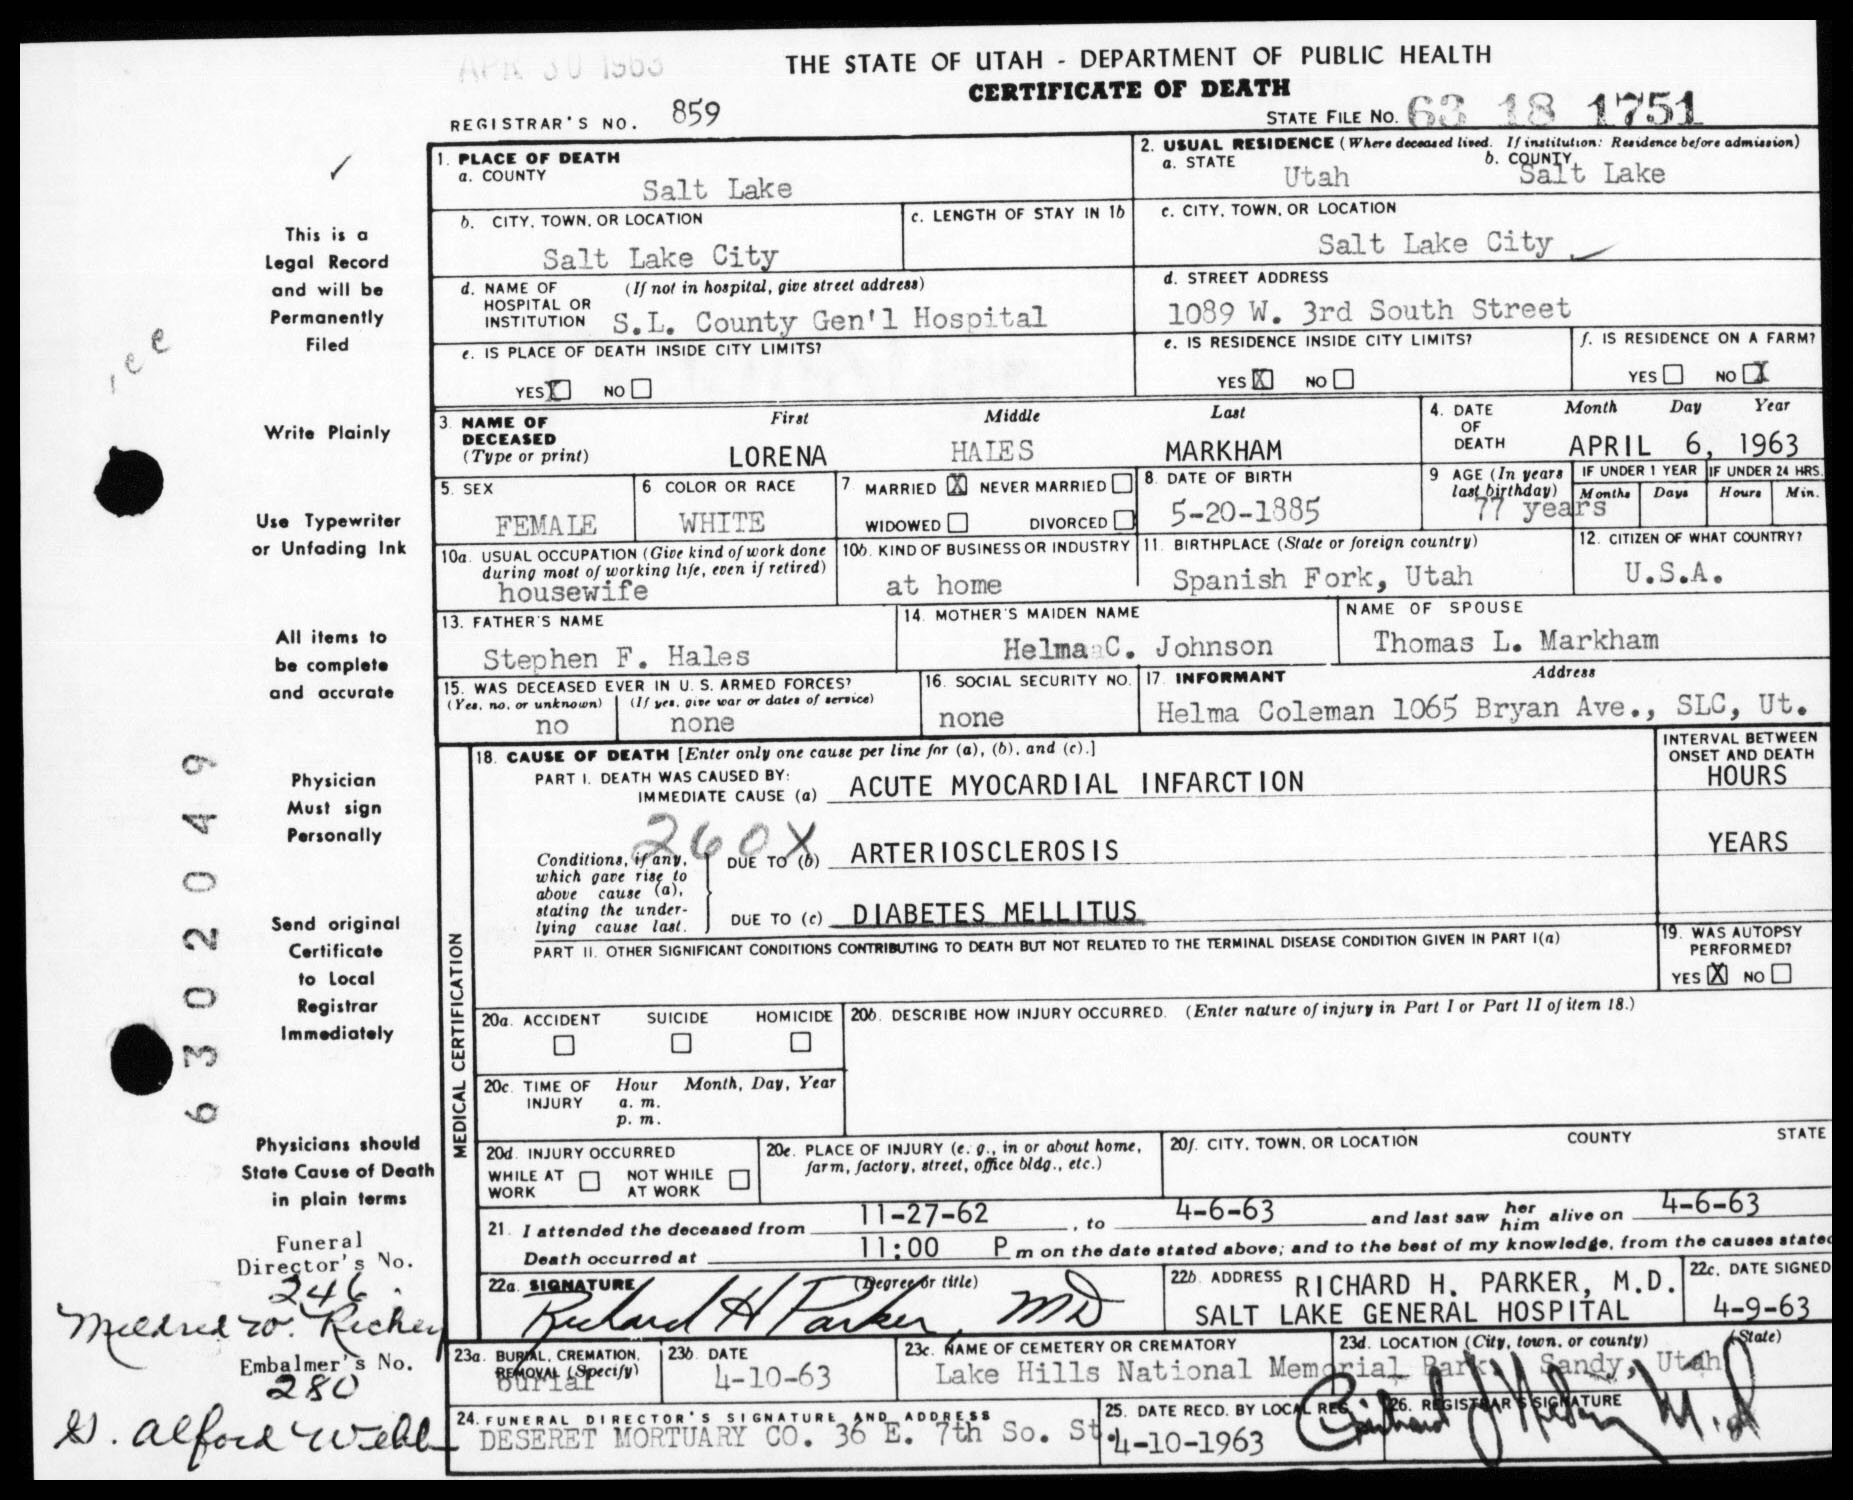 APR 30 1963
THE STATE OF UTAH - DEPARTMENT OF PUBLIC HEALTH
CERTIFICATE OF DEATH
REGISTRAR'S NO. 859
STATE FILE No. 63 18 1751
This is a
Legal Record
and will be
Permanently
Filed
Write Plainly
Use Typewriter
or Unfading Ink
All items to
be complete
and accurate
Physician
Must sign
Personally
Send original
Certificate
to Local
Registrar
Immediately
Physicians should
State Cause of Death
in plain terms
6302049
Funeral
Director's No.
246
Mildred W. Richey
Embalmer's No.
280
G. Alford Webb
1. PLACE OF DEATH
a. COUNTY
Salt Lake
2. USUAL RESIDENCE (Where deceased lived. If institution: Residence before admission)
a. STATE Utah
b. COUNTY Salt Lake
b. CITY, TOWN, OR LOCATION
Salt Lake City
c. LENGTH OF STAY IN 1b
c. CITY, TOWN, OR LOCATION
Salt Lake City
d. NAME OF HOSPITAL OR INSTITUTION (If not in hospital, give street address)
S.L. County Gen'l Hospital
d. STREET ADDRESS
1089 W. 3rd South Street
e. IS PLACE OF DEATH INSIDE CITY LIMITS?
YES X NO
e. IS RESIDENCE INSIDE CITY LIMITS?
YES X NO
f. IS RESIDENCE ON A FARM?
YES NO X
3. NAME OF DECEASED (Type or print)
First Middle Last
LORENA HALES MARKHAM
4. DATE OF DEATH
Month Day Year
APRIL 6, 1963
5. SEX
FEMALE
6 COLOR OR RACE
WHITE
7 MARRIED X NEVER MARRIED
WIDOWED DIVORCED
8. DATE OF BIRTH
5-20-1885
9 AGE (In years last birthday)
77 years
IF UNDER 1 YEAR
Months Days
IF UNDER 24 HRS.
Hours Min.
10a. USUAL OCCUPATION (Give kind of work done during most of working life, even if retired)
housewife
10b. KIND OF BUSINESS OR INDUSTRY
at home
11. BIRTHPLACE (State or foreign country)
Spanish Fork, Utah
12. CITIZEN OF WHAT COUNTRY?
U.S.A.
13. FATHER'S NAME
Stephen F. Hales
14. MOTHER'S MAIDEN NAME
Helma C. Johnson
NAME OF SPOUSE
Thomas L. Markham
15. WAS DECEASED EVER IN U.S. ARMED FORCES?
(Yes, no, or unknown) (If yes, give war or dates of service)
no none
16. SOCIAL SECURITY NO.
none
17. INFORMANT Address
Helma Coleman 1065 Bryan Ave., SLC, Ut.
MEDICAL CERTIFICATION
18. CAUSE OF DEATH [Enter only one cause per line for (a), (b), and (c).]
INTERVAL BETWEEN ONSET AND DEATH
PART I. DEATH WAS CAUSED BY:
IMMEDIATE CAUSE (a) ACUTE MYOCARDIAL INFARCTION HOURS
260X
Conditions, if any, which gave rise to above cause (a), stating the underlying cause last.
DUE TO (b) ARTERIOSCLEROSIS YEARS
DUE TO (c) DIABETES MELLITUS
PART II. OTHER SIGNIFICANT CONDITIONS CONTRIBUTING TO DEATH BUT NOT RELATED TO THE TERMINAL DISEASE CONDITION GIVEN IN PART I(a)
19. WAS AUTOPSY PERFORMED?
YES X NO
20a. ACCIDENT SUICIDE HOMICIDE
20b. DESCRIBE HOW INJURY OCCURRED. (Enter nature of injury in Part I or Part II of item 18.)
20c. TIME OF INJURY Hour Month, Day, Year
a. m.
p. m.
20d. INJURY OCCURRED
WHILE AT WORK NOT WHILE AT WORK
20e. PLACE OF INJURY (e. g., in or about home, farm, factory, street, office bldg., etc.)
20f. CITY, TOWN, OR LOCATION COUNTY STATE
21. I attended the deceased from 11-27-62, to 4-6-63 and last saw her him alive on 4-6-63
Death occurred at 11:00 P m on the date stated above; and to the best of my knowledge, from the causes stated
22a. SIGNATURE (Degree or title)
Richard H Parker, MD
22b. ADDRESS RICHARD H. PARKER, M.D.
SALT LAKE GENERAL HOSPITAL
22c. DATE SIGNED
4-9-63
23a. BURIAL, CREMATION, REMOVAL (Specify)
Burial
23b. DATE
4-10-63
23c. NAME OF CEMETERY OR CREMATORY
Lake Hills National Memorial Park
23d. LOCATION (City, town, or county) (State)
Sandy, Utah
24. FUNERAL DIRECTOR'S SIGNATURE AND ADDRESS
DESERET MORTUARY CO. 36 E. 7th So. St.
25. DATE RECD. BY LOCAL REG.
4-10-1963
26. REGISTRAR'S SIGNATURE
M.D